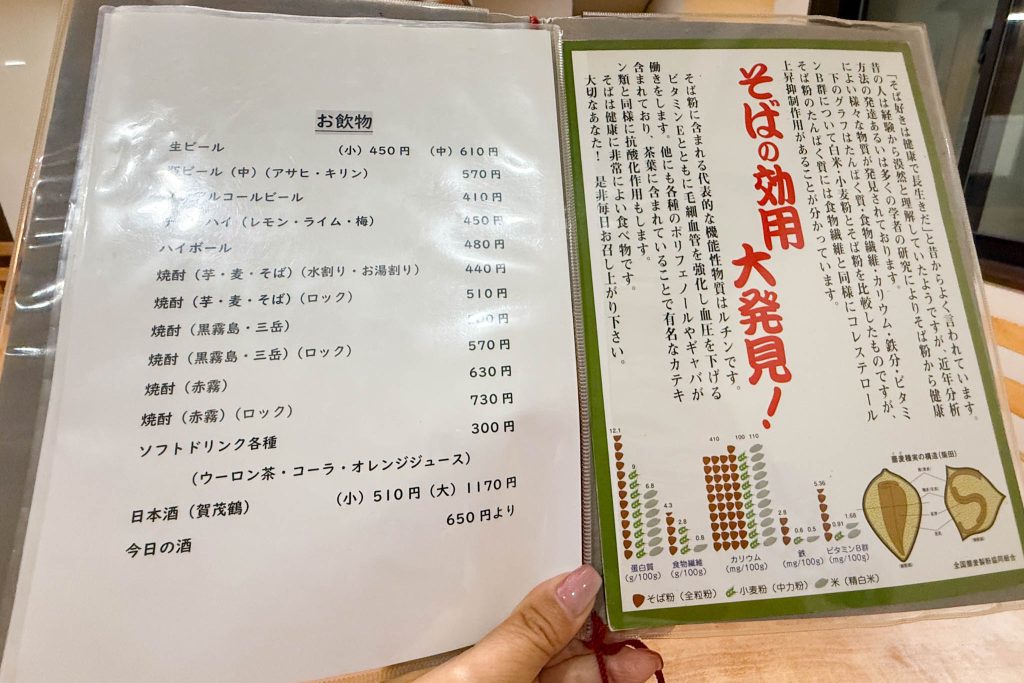 お飲物
生ビール (小) 450円 (中) 610円
ビール (中) (アサヒ・キリン) 570円
アルコールビール 410円
ハイ (レモン・ライム・梅) 450円
ハイボール 480円
焼酎 (芋・麦・そば) (水割り・お湯割り) 440円
焼酎 (芋・麦・そば) (ロック) 510円
焼酎 (黒霧島・三岳) 円
焼酎 (黒霧島・三岳) (ロック) 570円
焼酎 (赤霧) 630円
焼酎 (赤霧) (ロック) 730円
ソフトドリンク各種 300円
(ウーロン茶・コーラ・オレンジジュース)
日本酒 (賀茂鶴) (小) 510円 (大) 1170円
今日の酒 650円より
「そば好きは健康で長生きだ」と昔からよく言われています。
昔の人は経験から漠然と理解していたようですが、近年分析
方法の発達あるいは多くの学者の研究によりそば粉から健康
によい様々な物質が発見されております。
下のグラフはたんぱく質・食物繊維・カリウム・鉄分・ビタミ
ンB群について白米・小麦粉とそば粉を比較したものですが、
そば粉のたんぱく質には食物繊維と同様にコレステロール
上昇抑制作用があることが分かっています。
そばの効用
大発見!
そば粉に含まれる代表的な機能性物質はルチンです。
ビタミンEとともに毛細血管を強化し血圧を下げる
働きをします。他にも各種のポリフェノールやギャバが
含まれており、茶葉に含まれていることで有名なカテキ
ン類と同様に抗酸化作用もします。
そばは健康に非常によい食べ物です。
大切なあなた! 是非毎日お召し上がり下さい。
12.1 9 6.8
蛋白質
(g/100g)
4.3 2.8 0.8
食物繊維
(g/100g)
410 100 110
カリウム
(mg/100g)
2.8 0.6 0.5
鉄
(mg/100g)
5.36 0.91 1.68
ビタミンB群
(mg/100g)
そば粉 (全粒粉) 小麦粉 (中力粉) 米 (精白米)
蕎麦種実の構造 (柴田)
全国蕎麦製粉協同組合